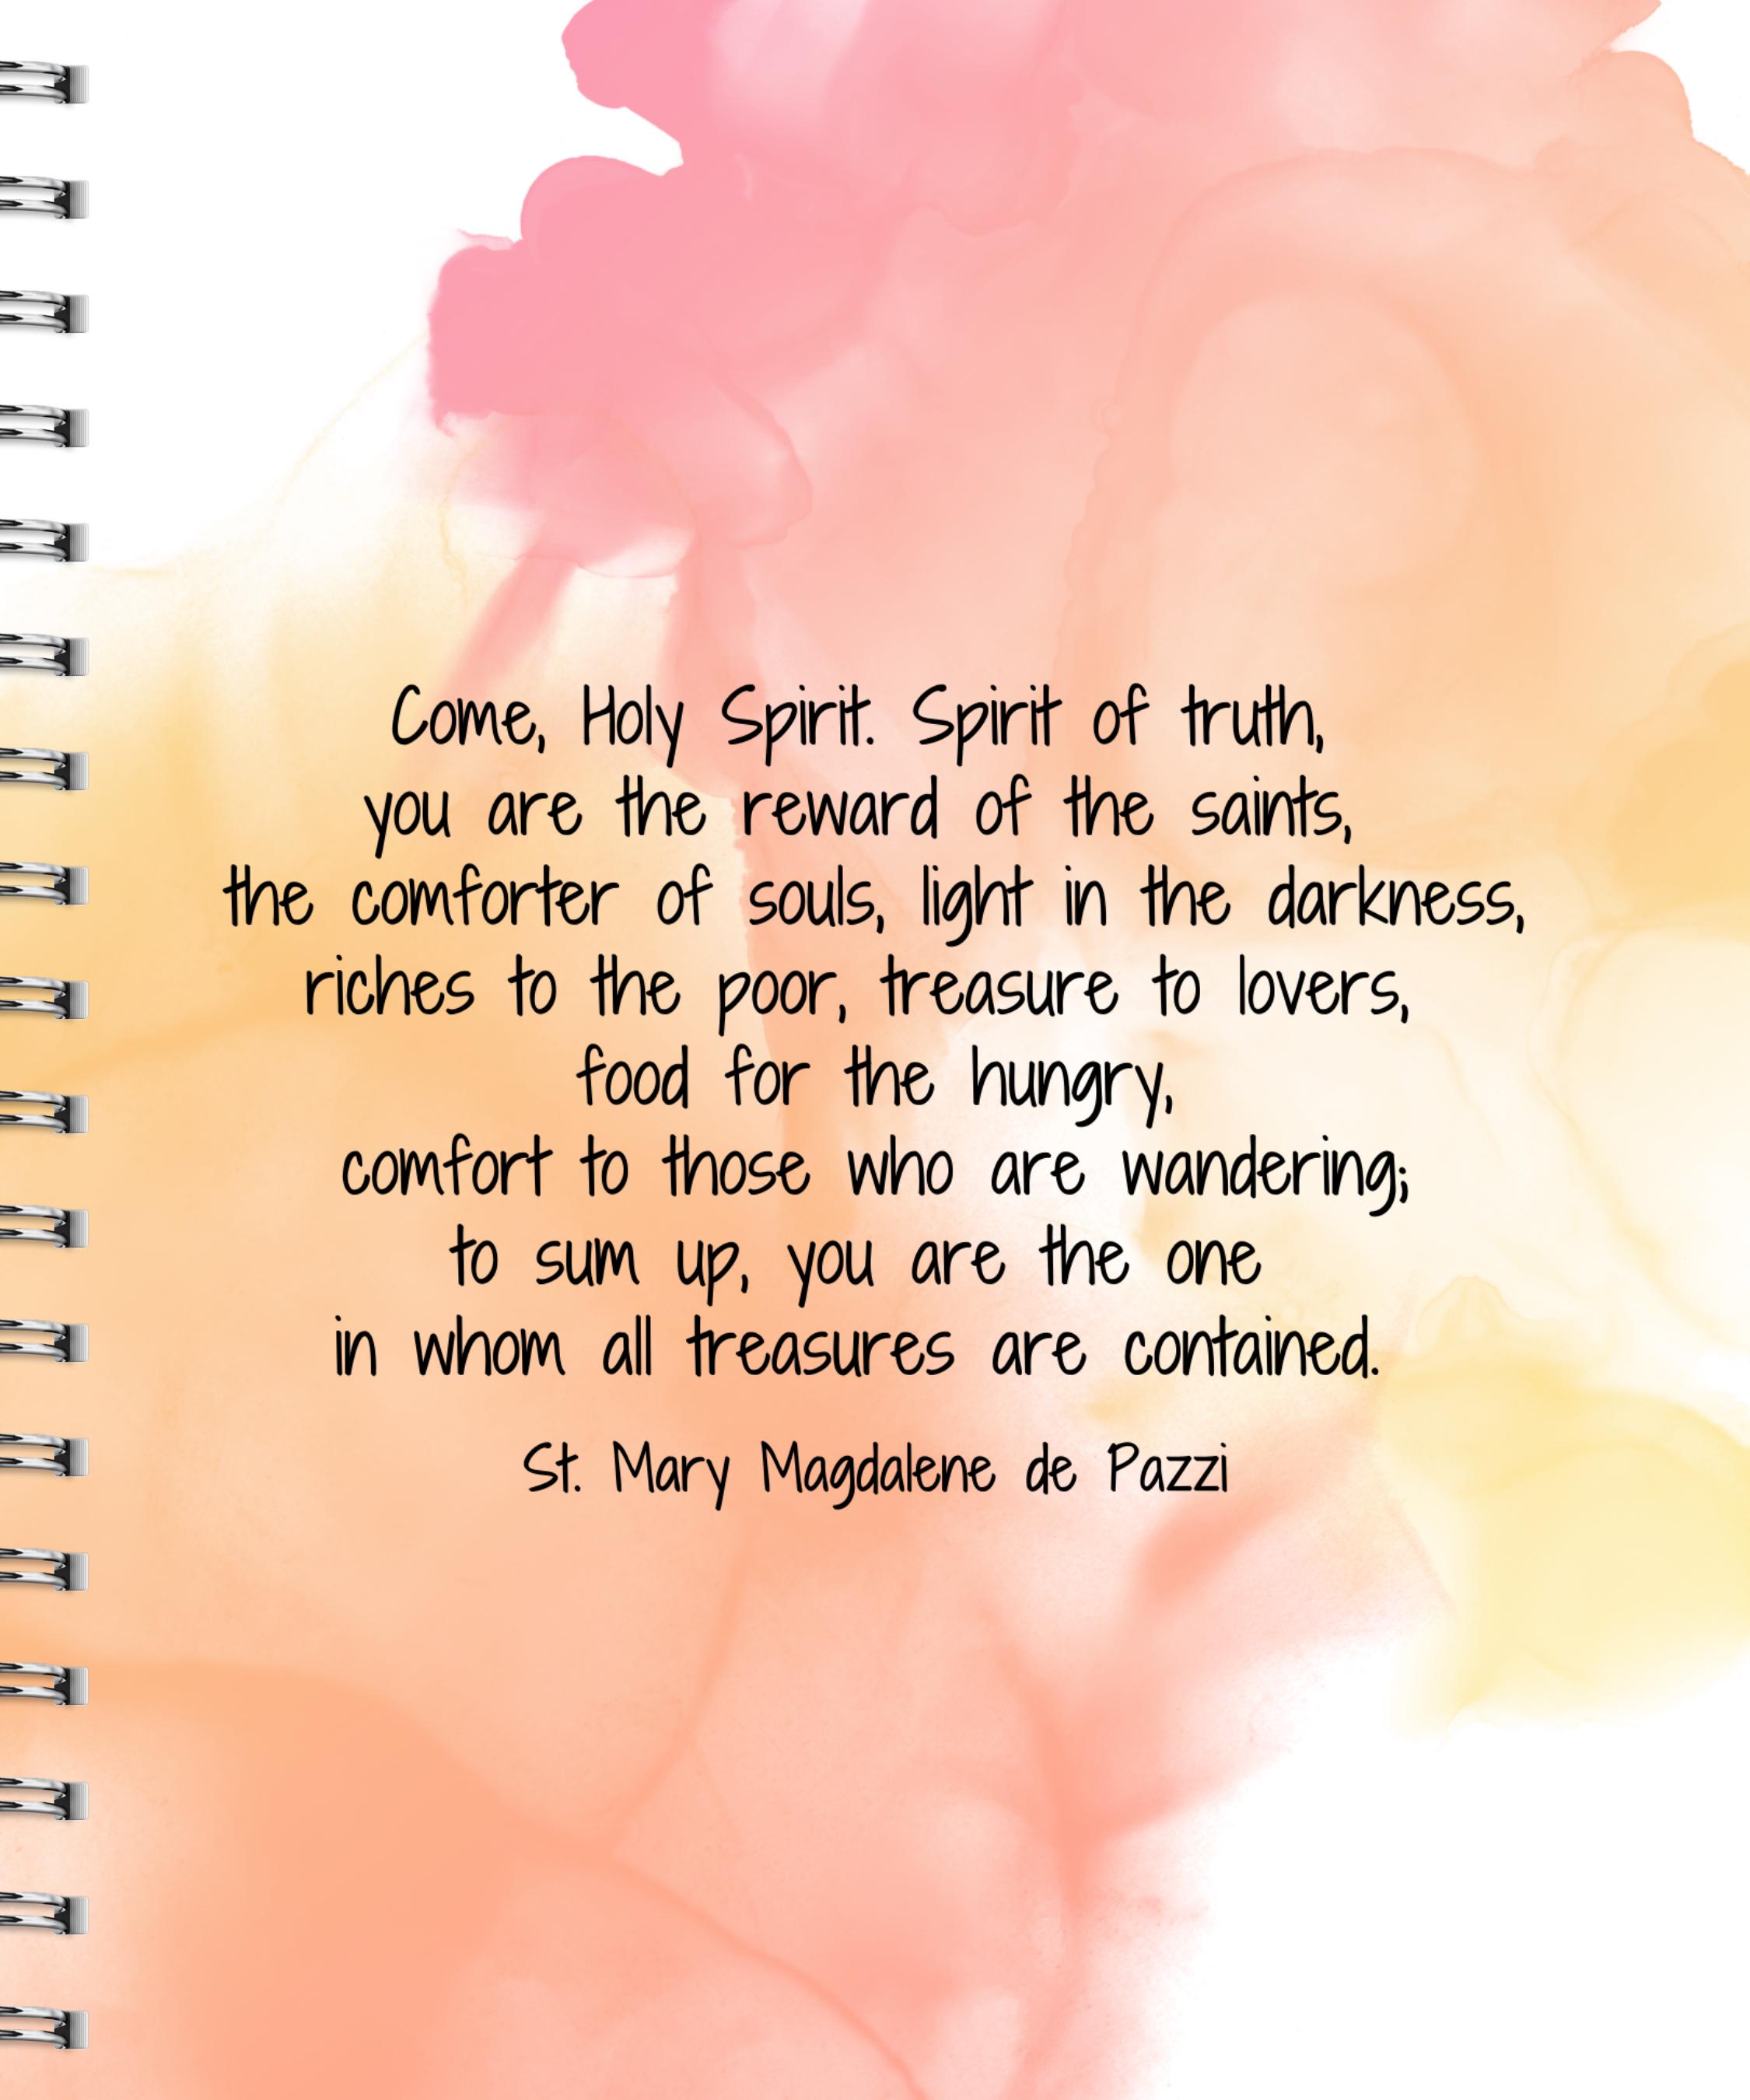 Come, Holy Spirit. Spirit of truth,
you are the reward of the saints,
the comforter of souls, light in the darkness,
riches to the poor, treasure to lovers,
food for the hungry,
comfort to those who are wandering;
to sum up, you are the one
in whom all treasures are contained.
St. Mary Magdalene de Pazzi